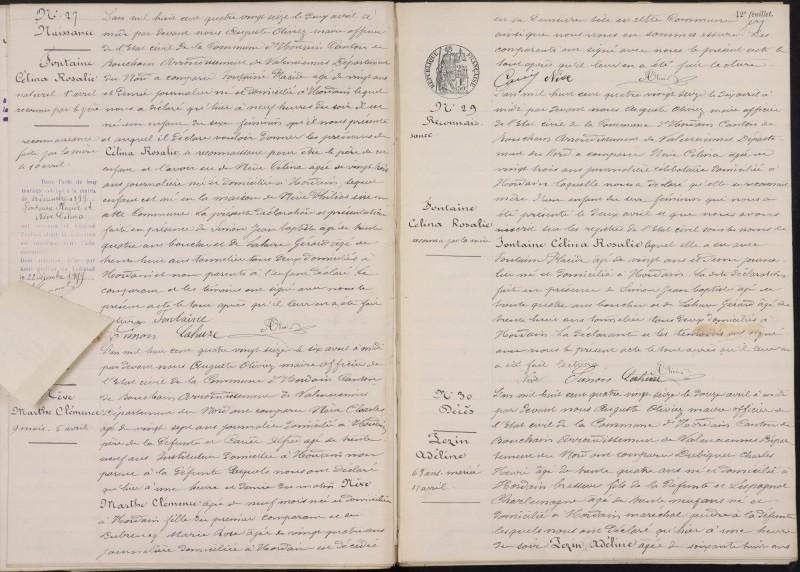 N° 27
Naissance
Fontaine
Célina Rosalie
naturel 1er avril
reconnue par le père
reconnaissance
faite par la mère
le 10 avril
L'an mil huit cent quatre vingt seize le deux avril à
midi par devant nous Auguste Olivez maire officier
de l'Etat civil de la Commune d'Hordain Canton de
Bouchain Arrondissement de Valenciennes Département
du Nord a comparu Fontaine Placide âgé de vingt ans
et demi journalier né et domicilié à Hordain lequel
nous a déclaré qu'hier à neuf heures du soir il est
né un enfant du sexe féminin qu'il nous présente
et auquel il déclare vouloir donner les prénoms de
Célina Rosalie, a reconnaissant pour être le père de cet
enfant et l'avoir eu de Nève Célina âgée de vingt trois
ans journalière née et domiciliée à Hordain, lequel
enfant est né en la maison de Nève sise en
cette Commune. La présente déclaration et présentation
faite en présence de Simon Jean baptiste âgé de trente
quatre ans boucher et de Lahure Gérard âgé de
trente huit ans tonnelier tous deux domiciliés à
Hordain et non parents à l'enfant déclaré. Le
comparant et les témoins ont signé avec nous le
présent acte le tout après qu'il leur en a été fait
lecture Fontaine
Simon Lahure
Nève
Marthe Clémence
9 mois. 6 avril
L'an mil huit cent quatre vingt seize le six avril à midi
par devant nous Auguste Olivez maire officier de
l'Etat civil de la Commune d'Hordain Canton
de Bouchain Arrondissement de Valenciennes
Département du Nord ont comparu Nève Charles
âgé de vingt sept ans journalier domicilié à Hordain
père de la défunte et âgé de trente
neuf ans Instituteur domicilié à Hordain non
parent à la défunte lesquels nous ont déclaré
qu'hier à une heure et demie du matin Nève
Marthe Clémence âgée de neuf mois née et domiciliée
à Hordain fille du premier comparant et de
Marie Rose âgée de vingt quatre ans
journalière domiciliée à Hordain est décédée
12e feuillet.
en sa demeure sise en cette Commune
ainsi que nous nous en sommes assuré. Les
comparants ont signé avec nous le présent acte le
tout après qu'il leur en a été fait lecture
Nève
REPUBLIQUE FRANÇAISE
N° 29
Reconnais-
sance
Fontaine
Célina Rosalie
reconnue par la mère
L'an mil huit cent quatre vingt seize le dix avril à
midi par devant nous Auguste Olivez maire officier
de l'Etat civil de la Commune d'Hordain Canton de
Bouchain Arrondissement de Valenciennes Départe-
ment du Nord a comparu Nève Célina âgée de
vingt trois ans journalière célibataire domiciliée à
Hordain laquelle nous a déclaré qu'elle se reconnait
mère d'un enfant du sexe féminin que nous a
été présenté le deux avril et que nous avons
inscrit sur les registres de l'Etat civil sous les noms de
Fontaine Célina Rosalie lequel elle a eu avec
Fontaine Placide âgé de vingt ans et demi journa-
lier né et domicilié à Hordain. La dite déclaration
fait en présence de Simon Jean baptiste âgé de
trente quatre ans boucher et de Lahure Gérard âgé de
trente huit ans tonnelier tous deux domiciliés à
Hordain. La déclarant et les témoins ont signé
avec nous le présent acte le tout après qu'il leur en
a été fait lecture.
Nève Simon Lahure
N° 30
Décès
Lezin
Adéline
68 ans. mariée
11 avril
L'an mil huit cent quatre vingt seize le douze avril à midi
par devant nous Auguste Olivez maire officier de
l'Etat civil de la Commune d'Hordain Canton de
Bouchain Arrondissement de Valenciennes Dépar-
tement du Nord ont comparu Dubiquer Charles
Henri âgé de trente quatre ans né et domicilié à
Hordain brasseur fils de la défunte et
Charlemagne âgé de trente neuf ans né et
domicilié à Hordain marechal à la défunte
lesquels nous ont déclaré qu'hier à une heure
du soir Lezin Adéline âgée de soixante huit ans